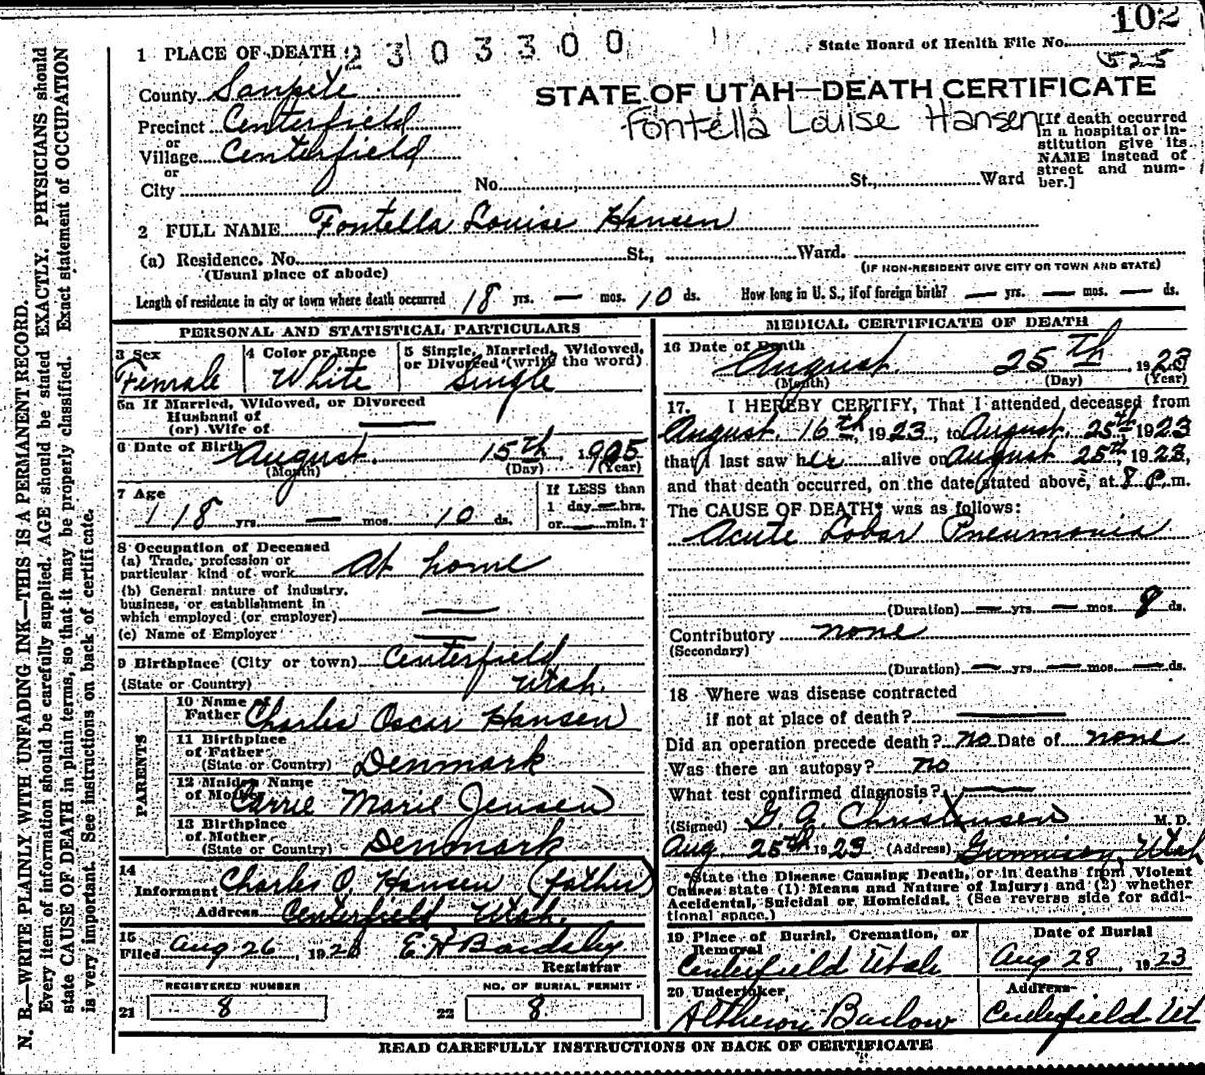 102
1 PLACE OF DEATH 2303300
State Board of Health File No.
525
County Sanpete
STATE OF UTAH—DEATH CERTIFICATE
Precinct Centerfield
Fontella Louise Hansen
or
Village Centerfield
or
City No. St., Ward
[If death occurred
in a hospital or in-
stitution give its
NAME instead of
street and num-
ber.]
2 FULL NAME Fontella Louise Hansen
(a) Residence. No. St., Ward.
(Usual place of abode) (IF NON-RESIDENT GIVE CITY OR TOWN AND STATE)
Length of residence in city or town where death occurred 18 yrs. — mos. 10 ds. How long in U. S., if of foreign birth? — yrs. — mos. — ds.
PERSONAL AND STATISTICAL PARTICULARS
3 Sex
Female
4 Color or Race
White
5 Single, Married, Widowed,
or Divorced (write the word)
Single
5a If Married, Widowed, or Divorced
Husband of
(or) Wife of —
6 Date of Birth August 15th, 1905
(Month) (Day) (Year)
7 Age
18 yrs. — mos. 10 ds.
If LESS than
1 day — hrs.
or — min.?
8 Occupation of Deceased
(a) Trade, profession or
particular kind of work At home
(b) General nature of industry,
business, or establishment in
which employed (or employer) —
(c) Name of Employer —
9 Birthplace (City or town) Centerfield
(State or Country) Utah.
PARENTS
10 Name of
Father Charles Oscar Hansen
11 Birthplace
of Father
(State or Country) Denmark
12 Maiden Name
of Mother Carrie Marie Jensen
13 Birthplace
of Mother
(State or Country) Denmark
14
Informant Charles O. Hansen (father)
Address Centerfield Utah.
15
Filed Aug 26, 1923 E H Bardsley
Registrar
REGISTERED NUMBER
21 8
NO. OF BURIAL PERMIT
22 8
MEDICAL CERTIFICATE OF DEATH
16 Date of Death
August 25th, 1923
(Month) (Day) (Year)
17. I HEREBY CERTIFY, That I attended deceased from
August 16th, 1923, to August 25th 1923
that I last saw her alive on August 25th, 1923,
and that death occurred, on the date stated above, at 8 p.m.
The CAUSE OF DEATH* was as follows:
Acute Lobar Pneumonia
(Duration) — yrs. — mos. 9 ds.
Contributory none
(Secondary)
(Duration) — yrs. — mos. — ds.
18 Where was disease contracted
if not at place of death? —
Did an operation precede death? no Date of none
Was there an autopsy? no
What test confirmed diagnosis? —
(Signed) G. G. Christensen M. D.
Aug 25th 1923 (Address) Gunnison, Utah
*State the Disease Causing Death, or in deaths from Violent
Causes state (1) Means and Nature of Injury; and (2) whether
Accidental, Suicidal or Homicidal. (See reverse side for addi-
tional space.)
19 Place of Burial, Cremation, or
Removal
Centerfield Utah
Date of Burial
Aug 28, 1923
20 Undertaker,
Barlow
Address
Centerfield Ut
READ CAREFULLY INSTRUCTIONS ON BACK OF CERTIFICATE
N. B.—WRITE PLAINLY WITH UNFADING INK—THIS IS A PERMANENT RECORD.
Every item of information should be carefully supplied. AGE should be stated EXACTLY. PHYSICIANS should
state CAUSE OF DEATH in plain terms, so that it may be properly classified. Exact statement of OCCUPATION
is very important. See instructions on back of certificate.